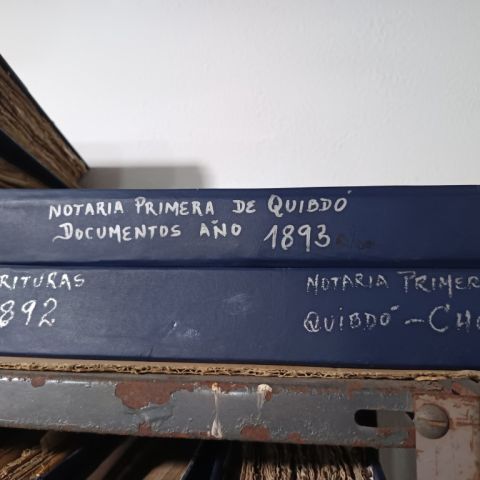 NOTARIA PRIMERA DE QUIBDÓ
DOCUMENTOS AÑO 1893
RITURAS
892
NOTARIA PRIMER
QUIBDÓ - CHO